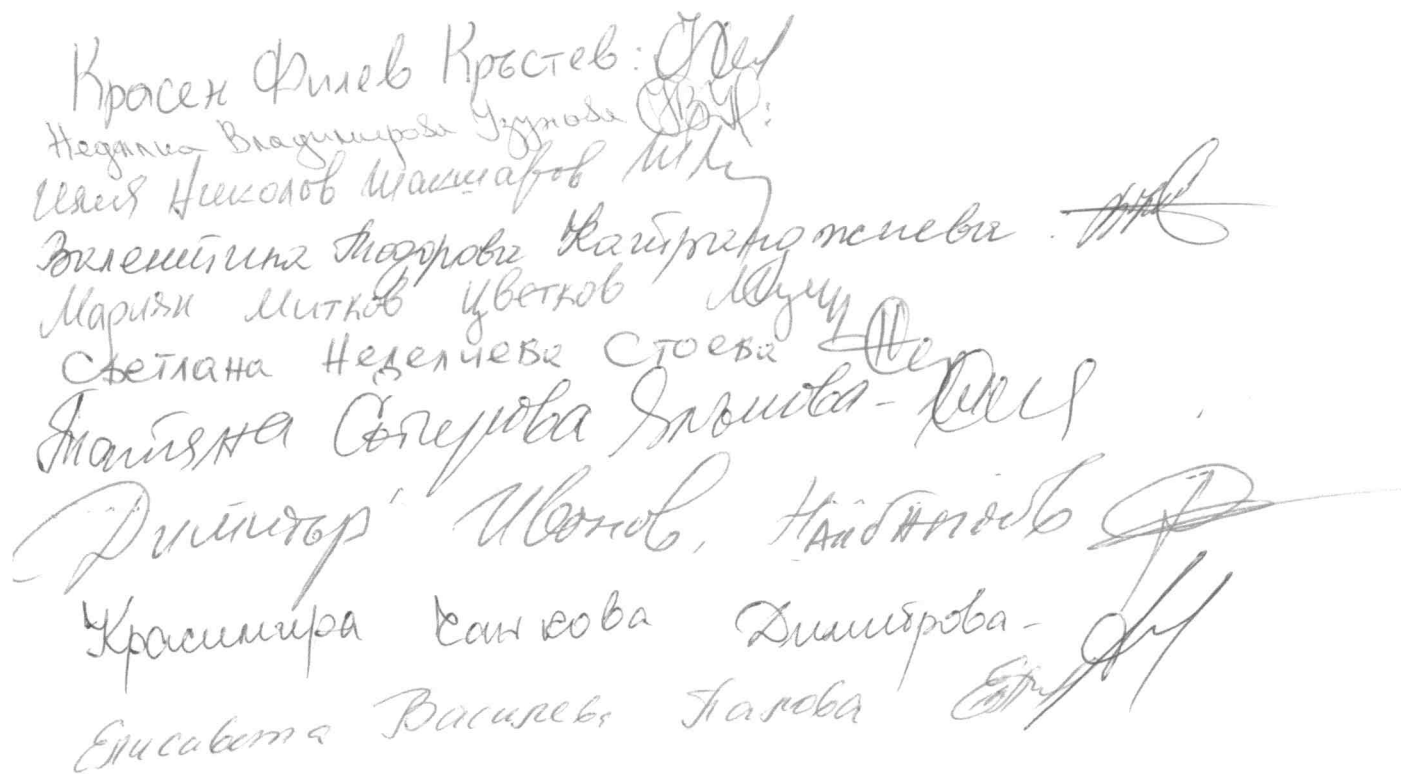 Красен Филев Кръстев:
Недялка Владимирова Узунова
Илия Николов Шакшаров
Валентина Тодорова Катранджиева
Мариян Митков Цветков
Светлана Неделчева Стоева
Татяна Ялъмова-
Димитър Иванов,
Красимира Димитрова-
Елисавета Василева Палова